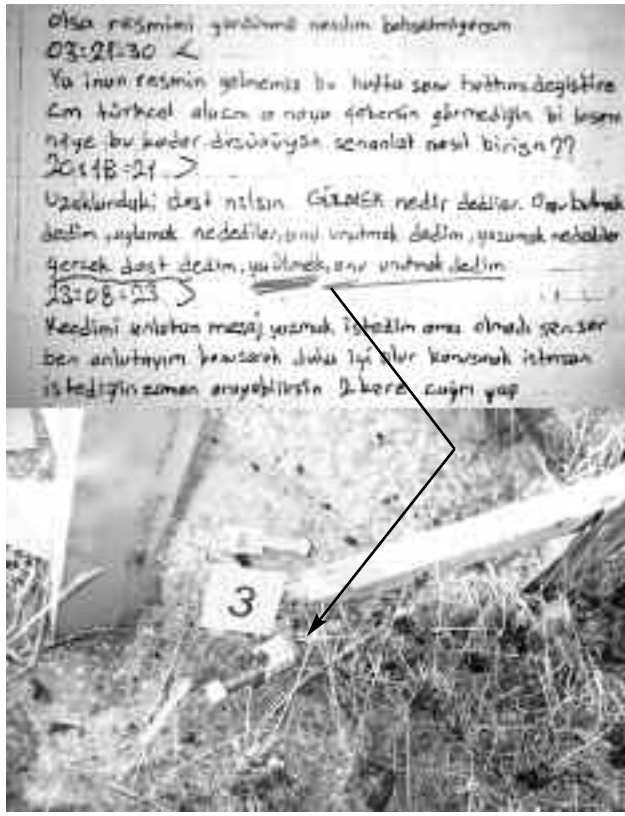 olsa resmimi gördünmü nesilim bahsetmiyorsun
03:21:30 <
Ya inan resmin gelmemiş bu hafta sonu hattımı değiştire
cm türkcel alıcm o naya gebersin görmediğin bi kosem
niye bu kadar düşünüyon sen anlat nasıl birisin??
20:18:21 >
Uzaklardaki dost nılsın GÜLMEK nedir dediler. O
dedim, ağlamak ne dediler, onu unutmak dedim, yaşamak nedediler
gerçek dost dedim, ya ölmek, onu unutmak dedim
23:08:23 >
Kendimi anlatan mesaj yazmak istedim ama olmadı sen sor
ben anlatayım konuşarak daha iyi olur konuşmak istersen
istediğin zaman arayabilirsin 2 kere çağrı yap
3